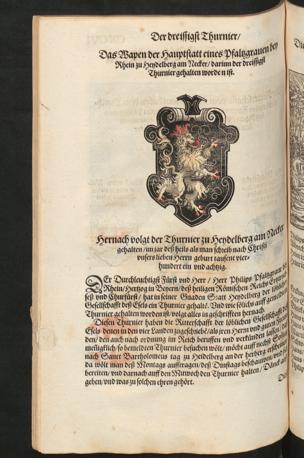 Der dreissigst Thurnier/
Das Wapen der Hauptstatt eines Pfaltzgrauen bey
Rhein zu Heydelberg am Necker/ darinn der dreissigst
Thurnier gehalten worden ist.
Hernach volgt der Thurnier zu Heydelberg am Necker
gehalten/ im jar deß heils als man schreib nach Christi
vnsers lieben Herrn geburt tausent vier-
hundert ein vnd achtzig.
DEr Durchleuchtigst Fürst vnd Herr/ Herr Philips Pfaltzgraue bey
Rhein/ Hertzog in Beyern/ deß heiligen Römischen Reichs
seß vnd Churfürst/ hat in seiner Gnaden Statt Heydelberg
Gesellschafft deß Esels ein Thurnier gehalten/ Vnd wie solchs auff
Thurnier gehalten worden ist/ volgt alles in geschrifften hernach.
Diesen Thurnier haben die Ritterschafft der löblichen Gesellschafft
Esels/ denen in den vier Landen zugeschriben/
den/ den auch nach ordnung im Reich beruffen vnd verkünden lassen/
meniglich/ so bemeldten Thurnier besuchen wölt/ möcht auff nechst
nach Sanct Bartholomeus tag zu Heydelberg an der herberg
Da wölt man deß Montags aufftragen/ deß Dinstags beschauwen/
bereiten/ vnd darnach auff den Mitwoch den Thurnier halten/
geben/ vnd was zu solchen ehren gehört.